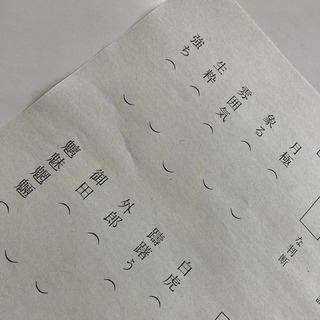 な判断
月極（　）
象る（　）
雰囲気（　）
生粋（　）
強ち（　）
白虎（
躊躇う（
外郎（
御田（
魑魅魍魎（